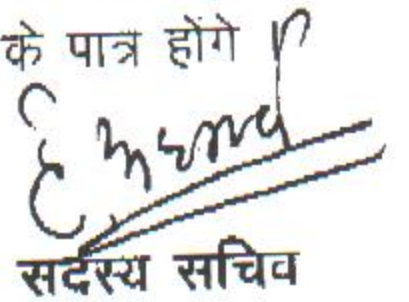 के पात्र होंगे
सदस्य सचिव